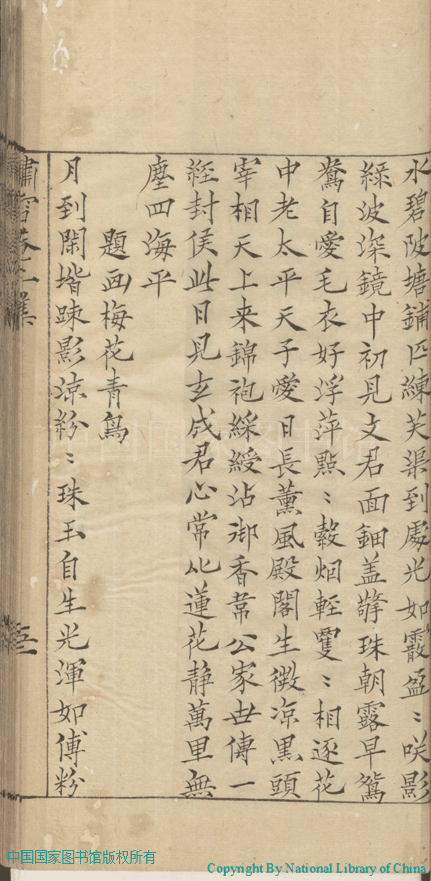 水碧陂塘鋪匹練芙渠到處光如霰盈〻咲影
緑波深鏡中初見文君面鈿盖擎珠朝露早鴛
鴦自愛毛衣好浮萍點〻縠烟輕雙〻相逐花
中老太平天子愛日長薰風殿閣生微凉黒頭
宰相天上來錦袍綵綬沾御香韋公家世傳一
經封侯此日見玄成君心常比蓮花静萬里無
塵四海平
題画梅花青鳥
月到閑堦踈影凉紛〻珠玉自生光渾如傅粉
中国国家图书馆版权所有
Copyright By National Library of China